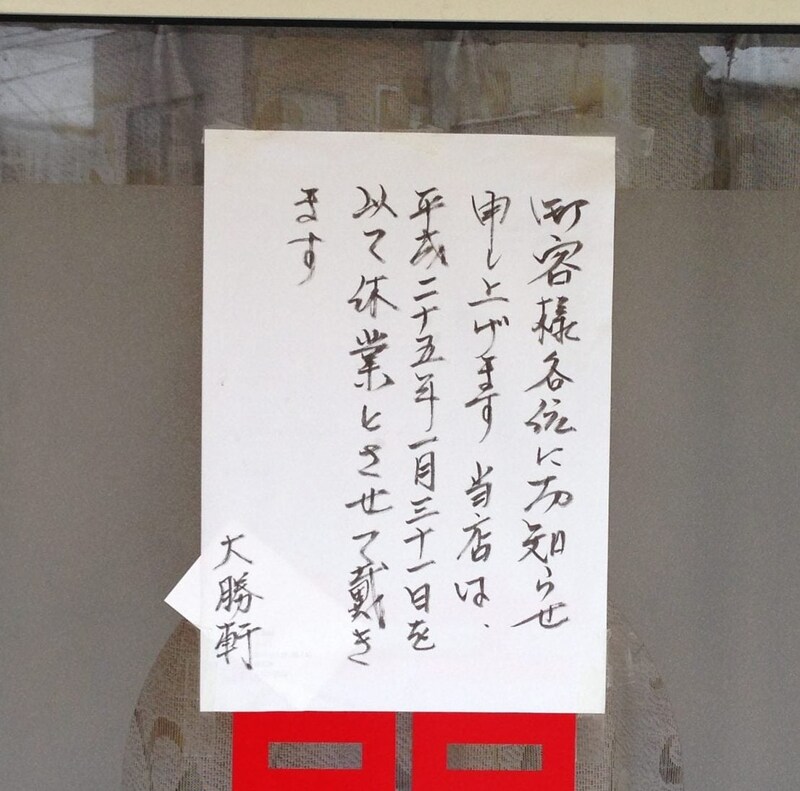 御客様各位にお知らせ
申し上げます 当店は、
平成二十五年一月三十一日を
以て休業とさせて戴き
ます
大勝軒